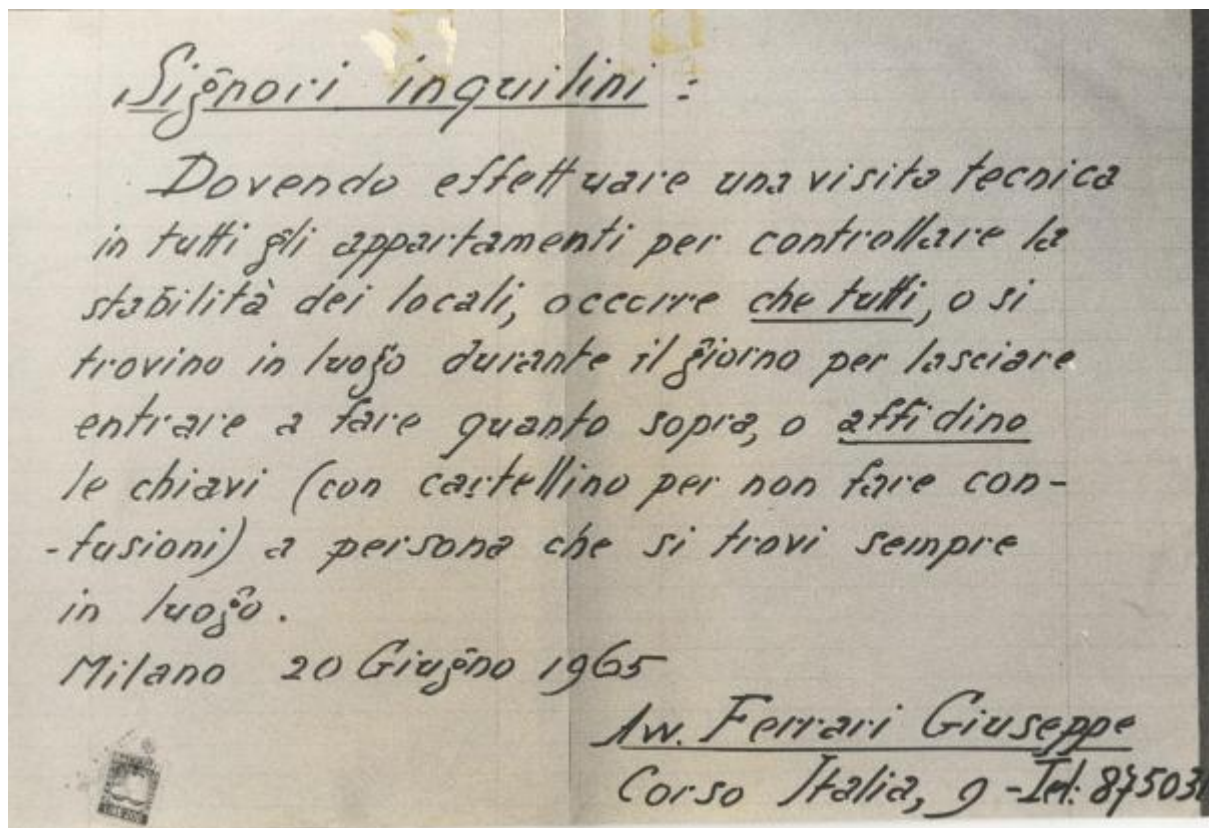 Signori inquilini :
Dovendo effettuare una visita tecnica
in tutti gli appartamenti per controllare la
stabilità dei locali, occorre che tutti, o si
trovino in luogo durante il giorno per lasciare
entrare a fare quanto sopra, o affidino
le chiavi (con cartellino per non fare con-
-fusioni) a persona che si trovi sempre
in luogo.
Milano 20 Giugno 1965
Avv. Ferrari Giuseppe
Corso Italia, 9 - Tel: 87503